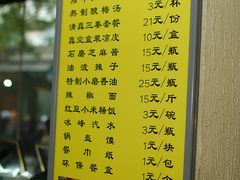 热制酸梅汤 3元/杯
清真三泰套餐 21元/份
真空盒装凉皮 10元/盒
石磨芝麻酱 15元/瓶
油泼辣子 15元/瓶
特制小磨香油 25元/瓶
辣椒面 15元/斤
红豆小米稀饭 3元/碗
冰峰汽水 3元/瓶
锅盔馍 1元/块
餐巾纸 1元/包
环保餐盒